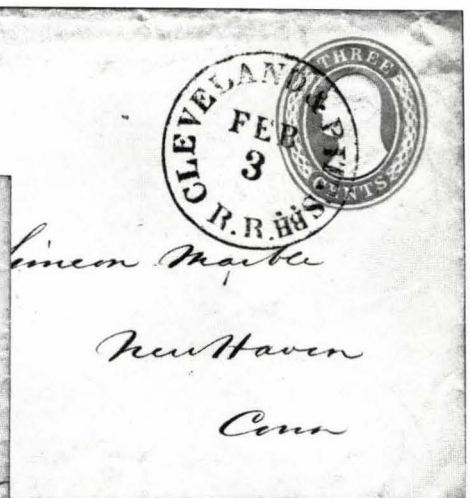 THREE
CENTS
CLEVELAND &
FEB
3
R.R.
Simeon Marble
New Haven
Conn